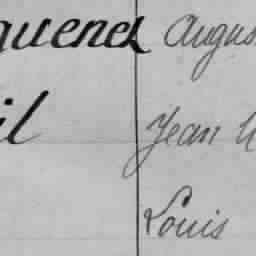 quenel Augus
il Jean
Louis